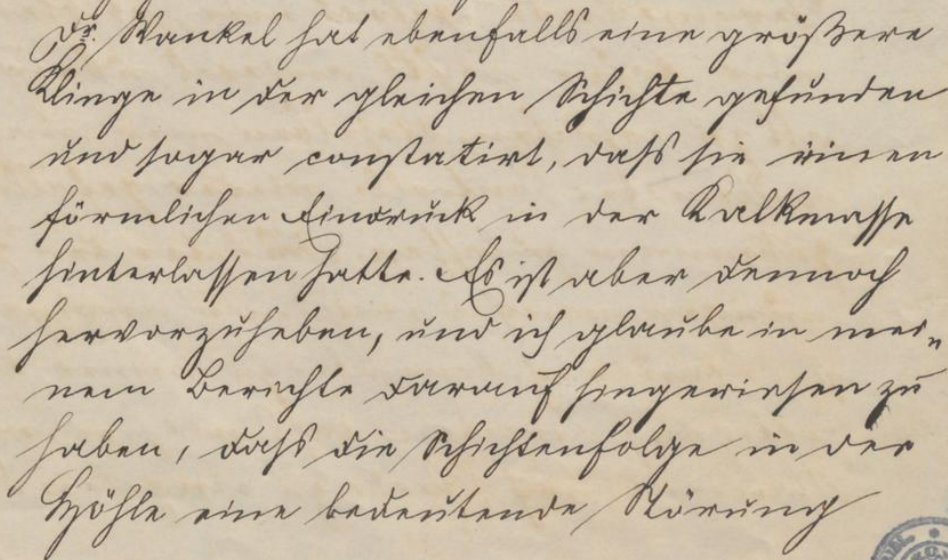 Dr. Wankel hat ebenfalls eine größere
Klinge in der gleichen Schichte gefunden
und sogar constatirt, daß sie einen
förmlichen Eindruck in der Kalkmasse
hinterlassen hatte. Es ist aber dennoch
hervorzuheben, und ich glaube in mei„
nem Berichte darauf hingewiesen zu
haben, daß die Schichtenfolge in der
Höhle eine bedeutende Störung